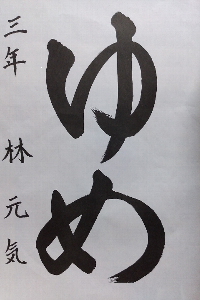 ゆめ
三年 林元気